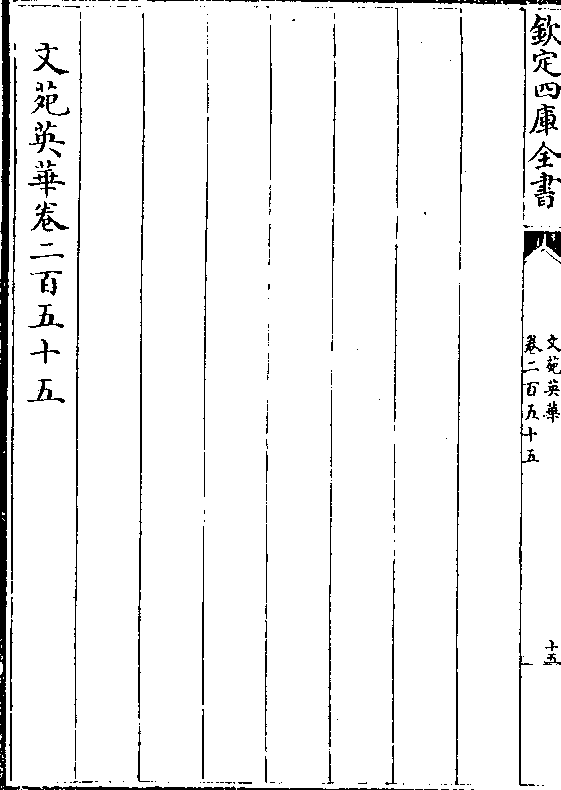 欽定四庫全書
文苑英華
卷二百五十五
十五
文苑英華卷二百五十五